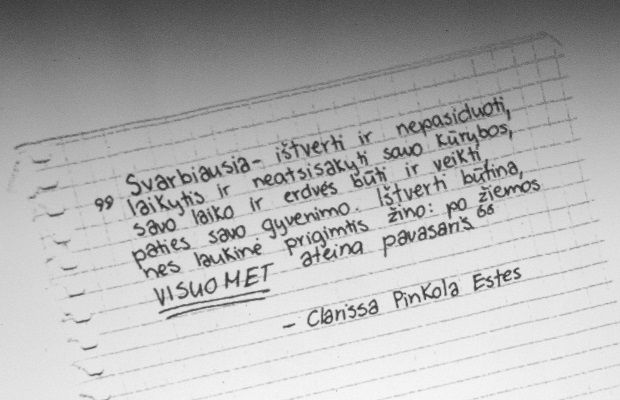 "Svarbiausia- ištverti ir nepasiduoti,
laikytis ir neatsisakyti savo kūrybos,
savo laiko ir erdvės būti ir veikti,
paties savo gyvenimo. Ištverti būtina,
nes laukinė prigimtis žino: po žiemos
VISUOMET ateina pavasaris"
- Clarissa Pinkola Estes